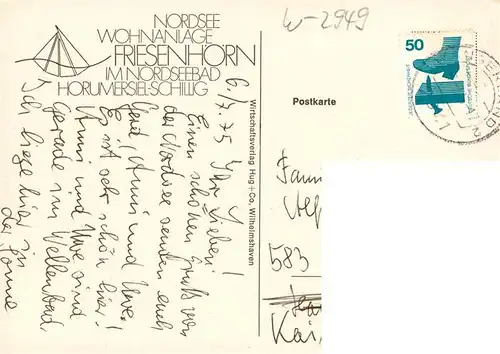 NORDSEE
WOHNANLAGE
FRIESENHORN
IM NORDSEEBAD
HORUMERSIEL-SCHILLIG
W-2949
50
DEUTSCHE BUNDESPOST
Postkarte
Wirtschaftsverlag Hug + Co. Wilhelmshaven
6.7.75 Ihr Lieben!
Einen schönen Gruß von
der Nordsee senden euch
Gerd, Anni und Uwe.
Es ist sehr schön hier!
Anni und Uwe sind
Gerade im Wellenbad
Ich liege hier in
der Sonne
583